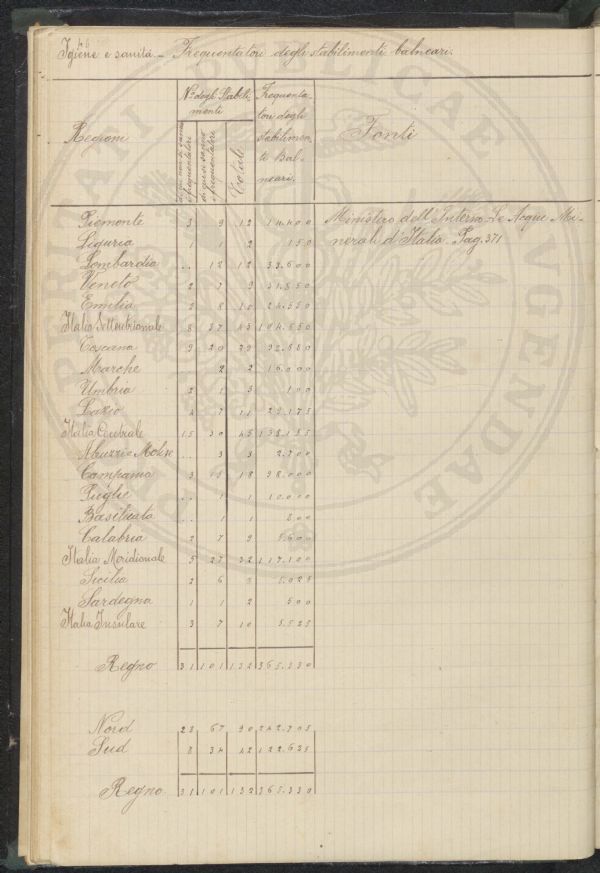 46
Igiene e sanità. - Frequentatori degli stabilimenti balneari.
Regioni | N° degli Stabilimenti | di cui non si sanno i frequentatori | di cui si sanno i frequentatori | Totale | Frequentatori degli stabilimenti Balneari. | Fonti
Piemonte 3 9 12 14.400 Ministero dell'Interno - Le Acque Mi-
Liguria 1 1 2 150 nerali d'Italia. Pag. 371
Lombardia .. 12 12 33.600
Veneto 2 7 9 31.850
Emilia 2 8 10 24.550
Italia Settentrionale 8 37 45 104.550
Toscana 9 20 29 92.880
Marche .. 2 2 16.000
Umbria 2 1 3 100
Lazio 4 7 11 29.175
Italia Centrale 15 30 45 138.155
Abruzzi e Molise .. 3 3 2.700
Campania 3 15 18 98.000
Puglie .. 1 1 10.000
Basilicata .. 1 1 800
Calabria 2 7 9 5.600
Italia Meridionale 5 27 32 117.100
Sicilia 2 6 8 5.025
Sardegna 1 1 2 500
Italia Insulare 3 7 10 5.525
Regno 31 101 132 365.330
Nord 23 67 90 242.705
Sud 8 34 42 122.625
Regno 31 101 132 365.330